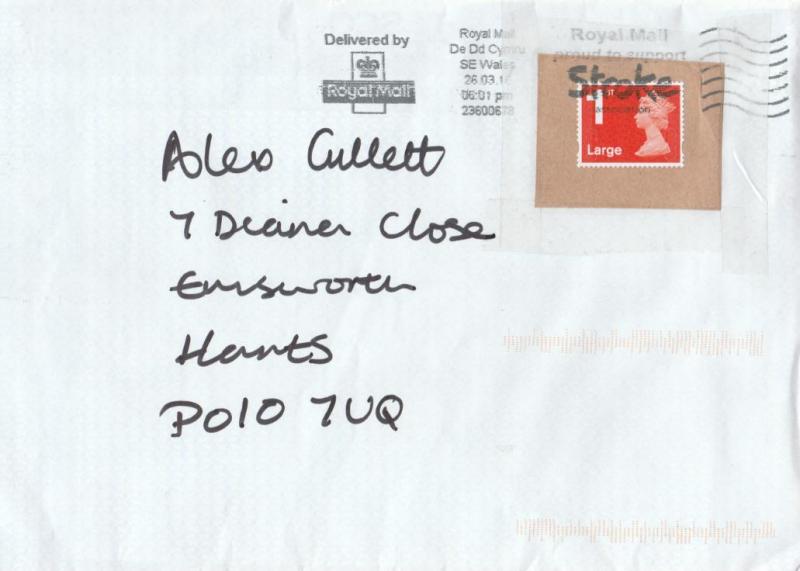 Delivered by
Royal Mail
Royal Mail
De Dd Cymru
SE Wales
26.03.1
06:01 pm
23600678
Royal Mail
proud to support
Stroke
association
1ST
Large
Alex Cullett
7 Close
Emsworth
Hants
PO10 7UQ